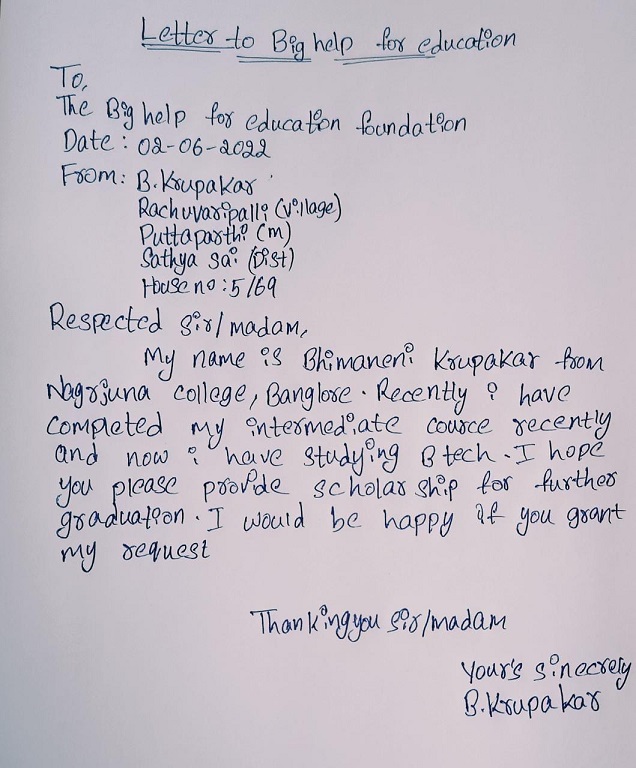 Letter to Big help for education
To,
The Big help for education foundation
Date : 02-06-2022
From : B. Krupakar
Rachuvaripalli (village)
Puttaparthi (m)
Sathya sai (Dist)
House no : 5/69
Respected sir/madam,
My name is Bhimaneni Krupakar from
Nagrjuna college, Banglore. Recently i have
completed my intermediate cource recently
and now i have studying B tech. I hope
you please provide scholar ship for further
graduation. I would be happy if you grant
my request
Thanking you sir/madam
Your's sinecrely
B. Krupakar